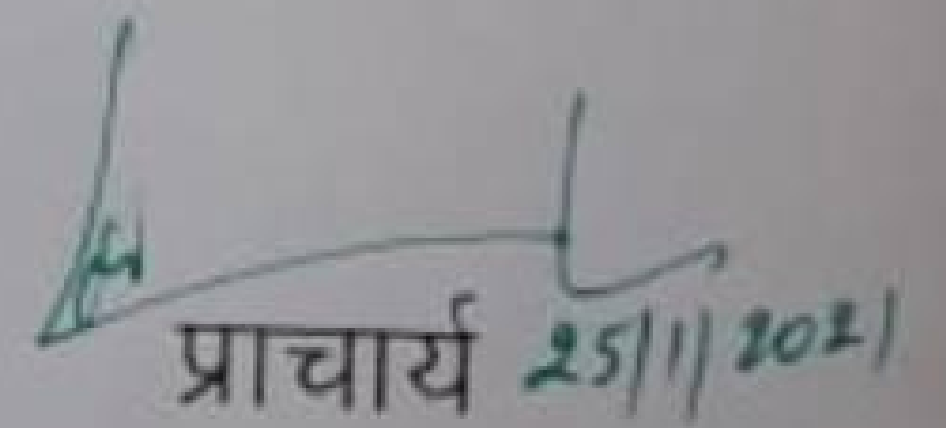 प्राचार्य 25/1/2021